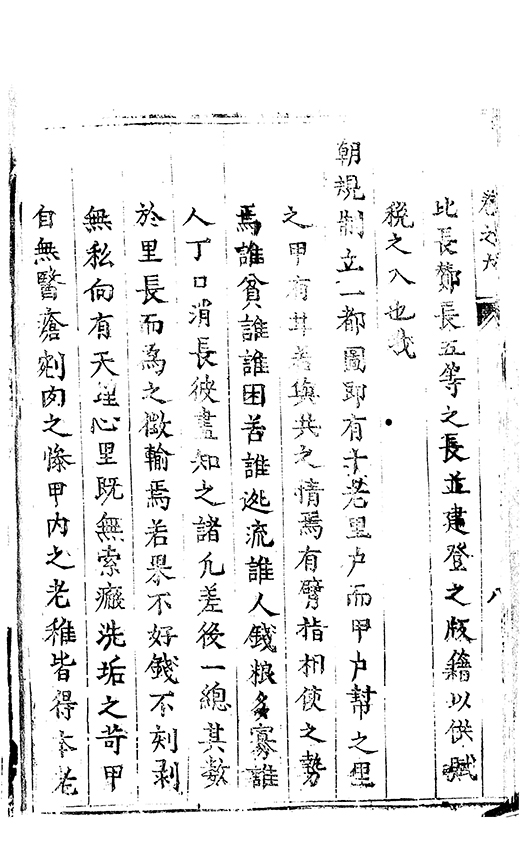 卷之九
八
比長鄰長五等之長並建登之版籍以供賦
稅之入也我
朝規制立一都圖即有十老里户而甲户幇之里
之甲有其若與共之情焉有臂指相使之勢
焉誰貧誰困苦誰逃流誰人錢粮多寡誰
人丁口消長彼盡知之諸凢差後一總其數
於里長而為之徵輸焉若果不好錢不刻剥
無私向有天理心里既無索癥洗垢之苛甲
自無醫瘡剜肉之慘甲內之老稚皆得夲老